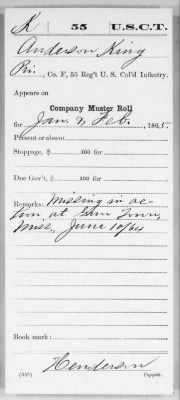 K 55 U.S.C.T.
Anderson King
Pri., Co. F, 55 Reg't U. S. Col'd Infantry.
Appears on
Company Muster Roll
for Jan. & Feb., 1865
Present or absent
Stoppage, $ 100 for
Due Gov't, $ 100 for
Remarks: Missing in ac-
tion at Gun Town,
Miss, June 10/64
Book mark:
Henderson
(358) Copyist.